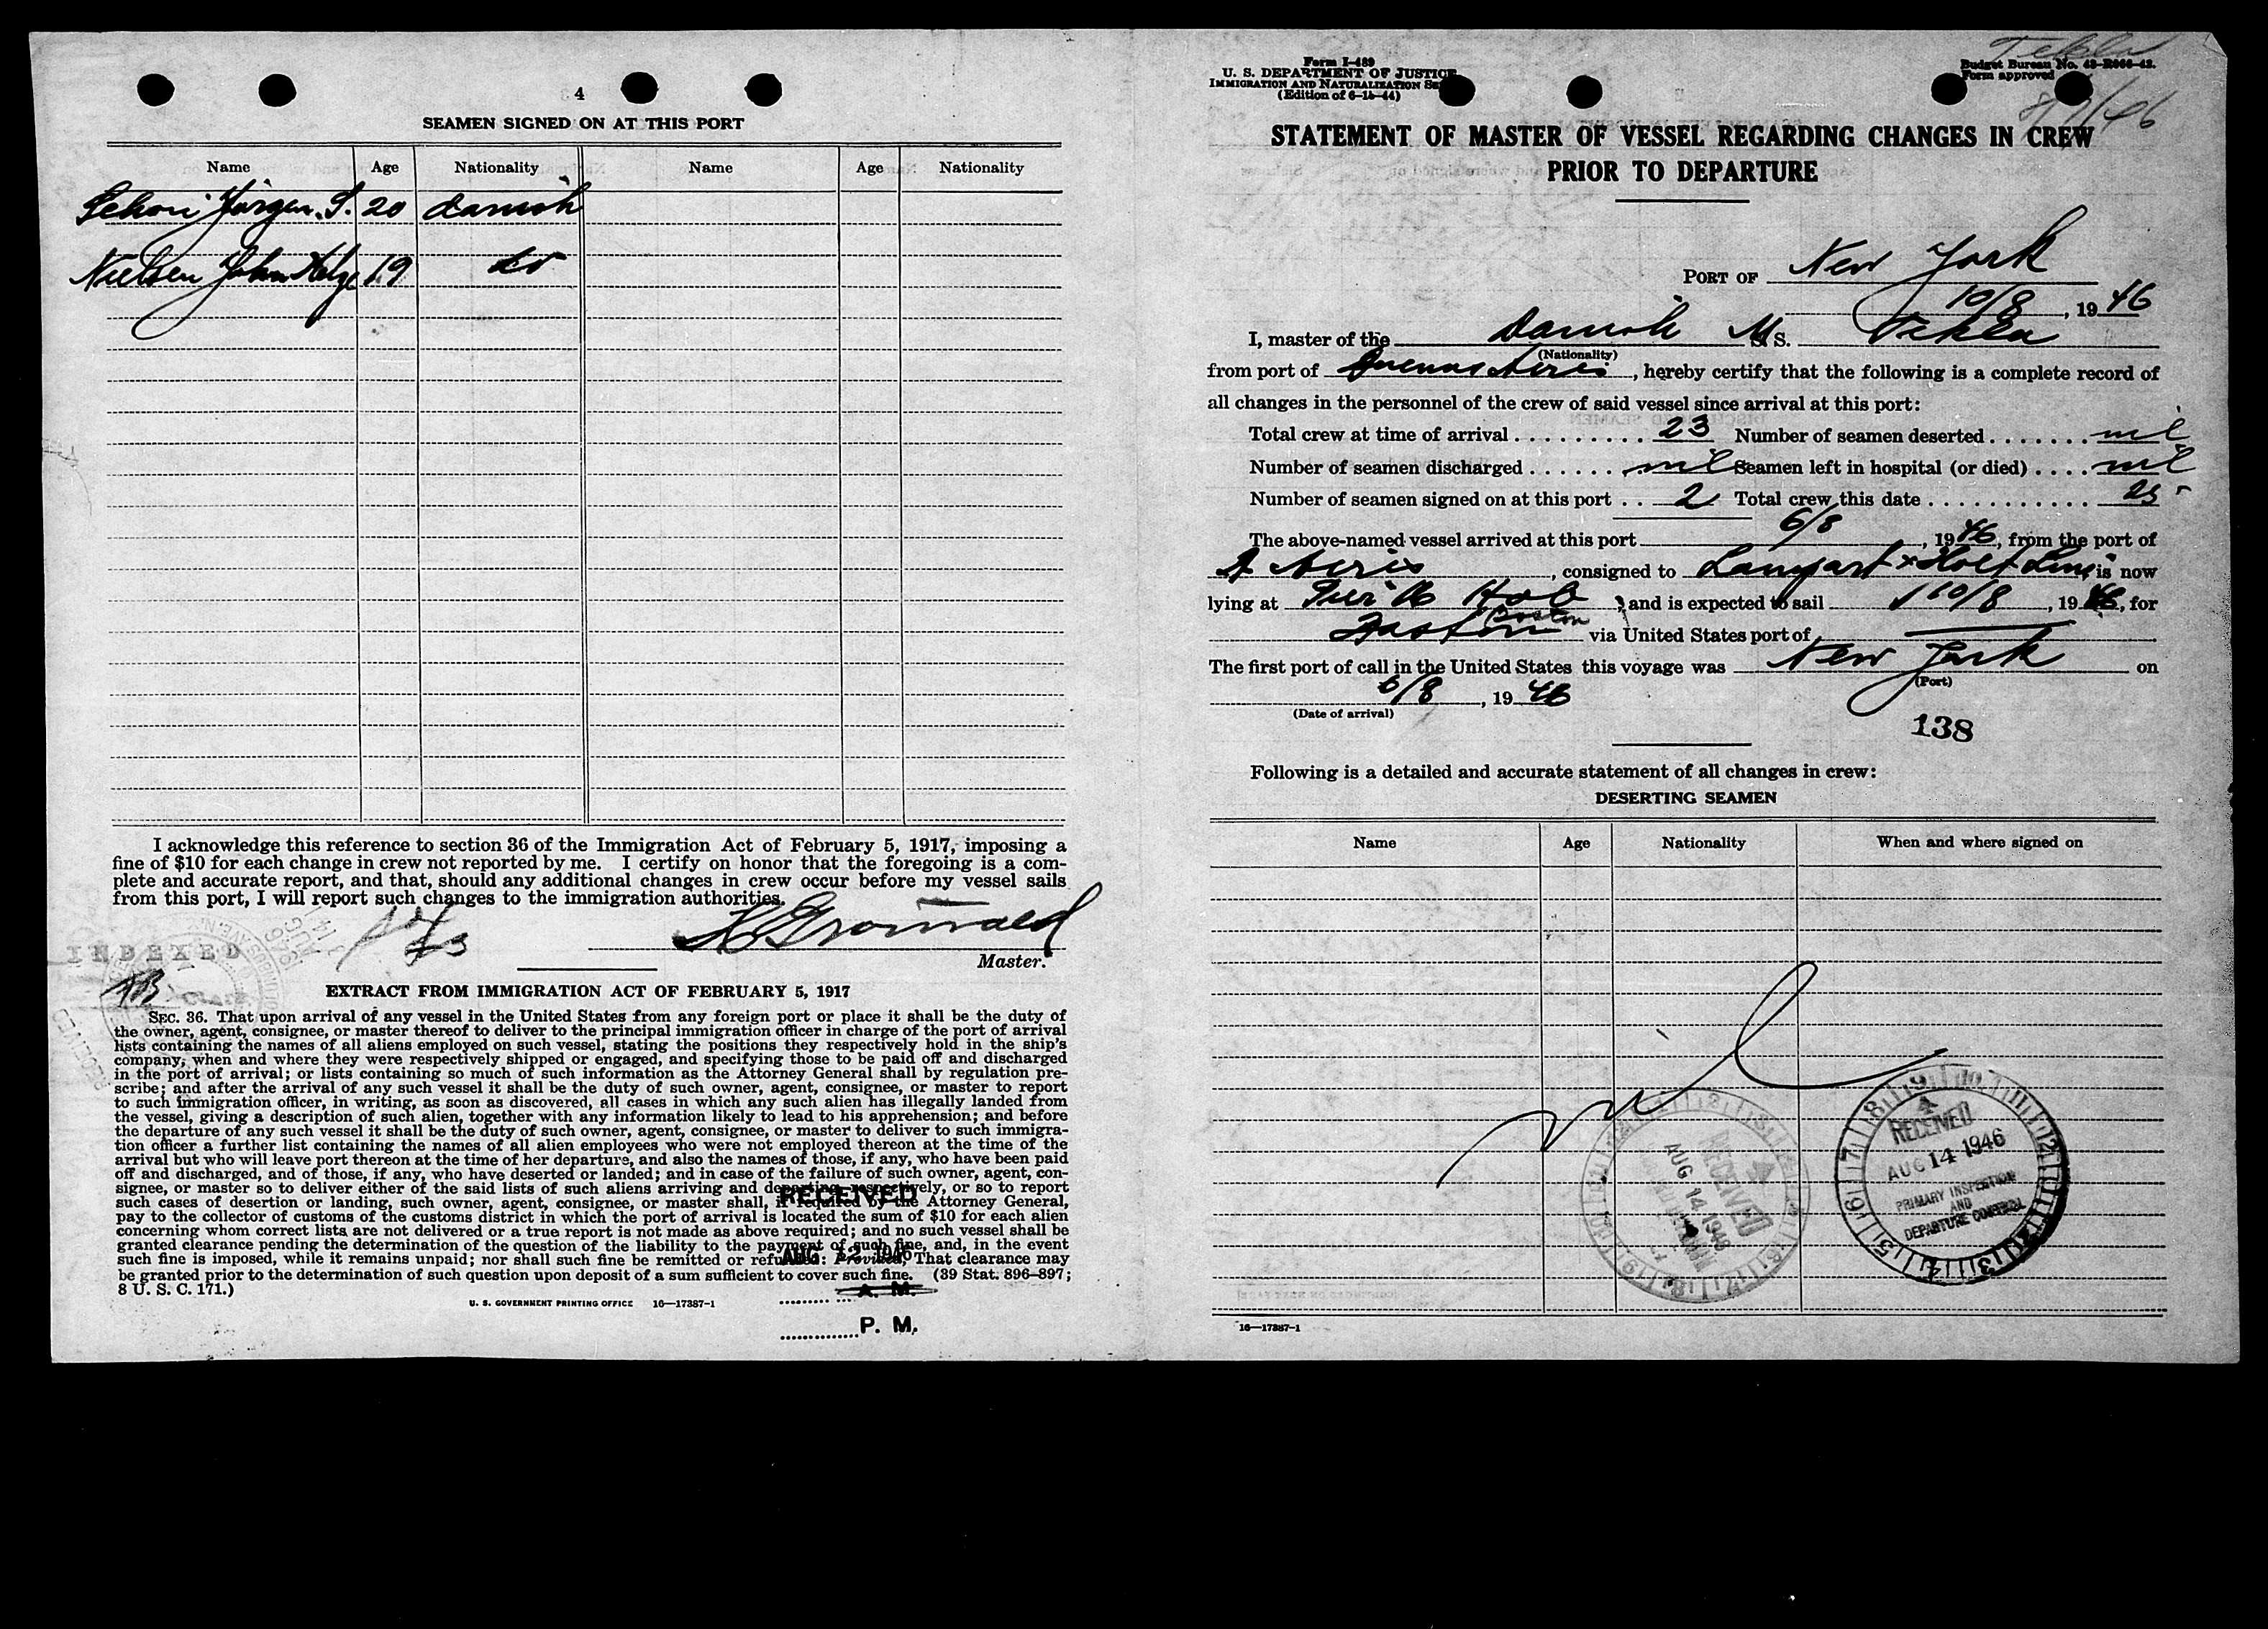 4
SEAMEN SIGNED ON AT THIS PORT
Name Age Nationality Name Age Nationality
Jörgen S. 20 danish
Nielsen John Helge 19 do
I acknowledge this reference to section 36 of the Immigration Act of February 5, 1917, imposing a
fine of $10 for each change in crew not reported by me. I certify on honor that the foregoing is a com-
plete and accurate report, and that, should any additional changes in crew occur before my vessel sails
from this port, I will report such changes to the immigration authorities.
INDEXED
Master.
EXTRACT FROM IMMIGRATION ACT OF FEBRUARY 5, 1917
SEC. 36. That upon arrival of any vessel in the United States from any foreign port or place it shall be the duty of
the owner, agent, consignee, or master thereof to deliver to the principal immigration officer in charge of the port of arrival
lists containing the names of all aliens employed on such vessel, stating the positions they respectively hold in the ship's
company, when and where they were respectively shipped or engaged, and specifying those to be paid off and discharged
in the port of arrival; or lists containing so much of such information as the Attorney General shall by regulation pre-
scribe; and after the arrival of any such vessel it shall be the duty of such owner, agent, consignee, or master to report
to such immigration officer, in writing, as soon as discovered, all cases in which any such alien has illegally landed from
the vessel, giving a description of such alien, together with any information likely to lead to his apprehension; and before
the departure of any such vessel it shall be the duty of such owner, agent, consignee, or master to deliver to such immigra-
tion officer a further list containing the names of all alien employees who were not employed thereon at the time of the
arrival but who will leave port thereon at the time of her departure, and also the names of those, if any, who have been paid
off and discharged, and of those, if any, who have deserted or landed; and in case of the failure of such owner, agent, con-
signee, or master so to deliver either of the said lists of such aliens arriving and departing, respectively, or so to report
such cases of desertion or landing, such owner, agent, consignee, or master shall, if required by the Attorney General,
pay to the collector of customs of the customs district in which the port of arrival is located the sum of $10 for each alien
concerning whom correct lists are not delivered or a true report is not made as above required; and no such vessel shall be
granted clearance pending the determination of the question of the liability to the payment of such fine, and, in the event
such fine is imposed, while it remains unpaid; nor shall such fine be remitted or refunded: Provided, That clearance may
be granted prior to the determination of such question upon deposit of a sum sufficient to cover such fine. (39 Stat. 896–897;
8 U. S. C. 171.)
RECEIVED
AUG 12 1946
A. M.
P. M.
U. S. GOVERNMENT PRINTING OFFICE 16—17387-1
Tekla
Form I-489
U. S. DEPARTMENT OF JUSTICE
IMMIGRATION AND NATURALIZATION SE
(Edition of 6-15-44)
Budget Bureau No. 43-R066-42.
Form approved
STATEMENT OF MASTER OF VESSEL REGARDING CHANGES IN CREW
PRIOR TO DEPARTURE
PORT OF New York
10/8, 1946
I, master of the danish M. S. Tekla
(Nationality)
from port of Buenos Aires, hereby certify that the following is a complete record of
all changes in the personnel of the crew of said vessel since arrival at this port:
Total crew at time of arrival 23 Number of seamen deserted nil
Number of seamen discharged nil Seamen left in hospital (or died) nil
Number of seamen signed on at this port 2 Total crew this date 25
The above-named vessel arrived at this port 6/8, 1946, from the port of
B Aires, consigned to Lamport & Holt Line, is now
lying at Pier 16 Hob, and is expected to sail 10/8, 1946, for
Boston Boston via United States port of
The first port of call in the United States this voyage was New York on
(Port)
6/8, 1946
(Date of arrival)
138
Following is a detailed and accurate statement of all changes in crew:
DESERTING SEAMEN
Name Age Nationality When and where signed on
nil
RECEIVED
AUG 14 1946
RECEIVED
AUG 14 1946
PRIMARY INSPECTION
AND
DEPARTURE CONTROL
16—17387-1